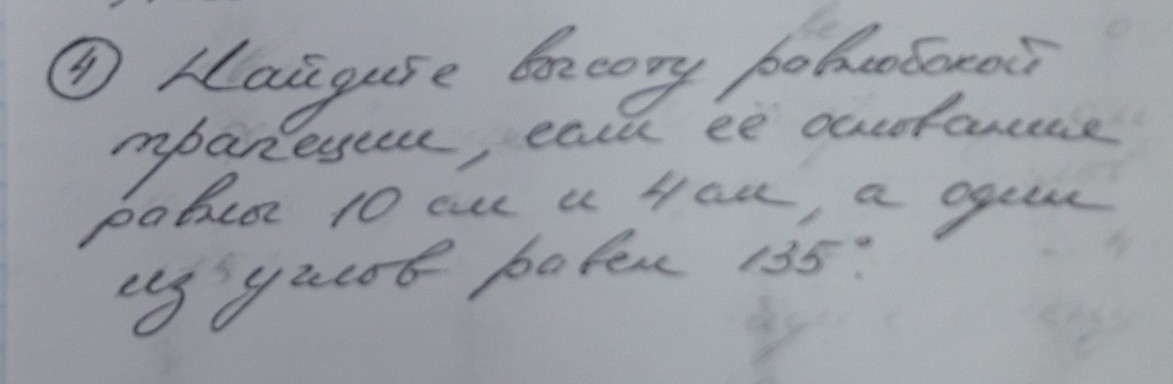 ④ Найдите высоту равнобокой
трапеции, если её основания
равны 10 см и 4 см, а один
из углов равен 135°.